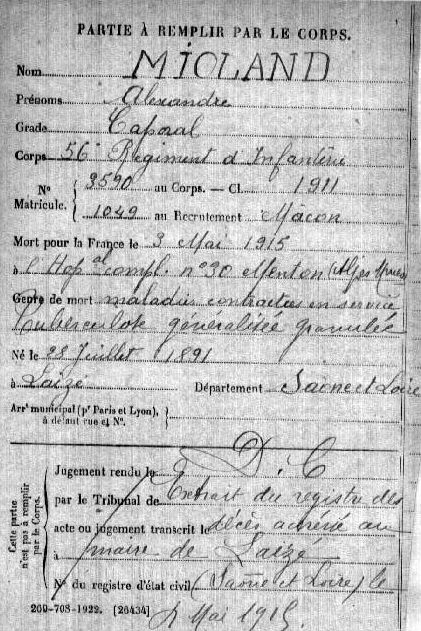 PARTIE À REMPLIR PAR LE CORPS.
Nom MIOLAND
Prénoms Alexandre
Grade Caporal
Corps 56e Régiment d'Infanterie
N° Matricule. { 3590 au Corps. — Cl. 1911
1049 au Recrutement Mâcon
Mort pour la France le 3 Mai 1915
à l'Hop al compl. n° 30 Menton (Alpes Mmes
Genre de mort maladies contractées en service
Tuberculose généralisée granulée
Né le 28 Juillet 1891
à Laizé Département Saône et Loire
Arr t municipal (p r Paris et Lyon),
à défaut rue et N°.
D. C
Cette partie n'est pas à remplir par le Corps.
Jugement rendu le
par le Tribunal de Extrait du registre des
acte ou jugement transcrit le décès adressé au
à maire de Laizé
N° du registre d'état civil (Saône et Loire) le
209-708-1922. [26434] Mai 1915